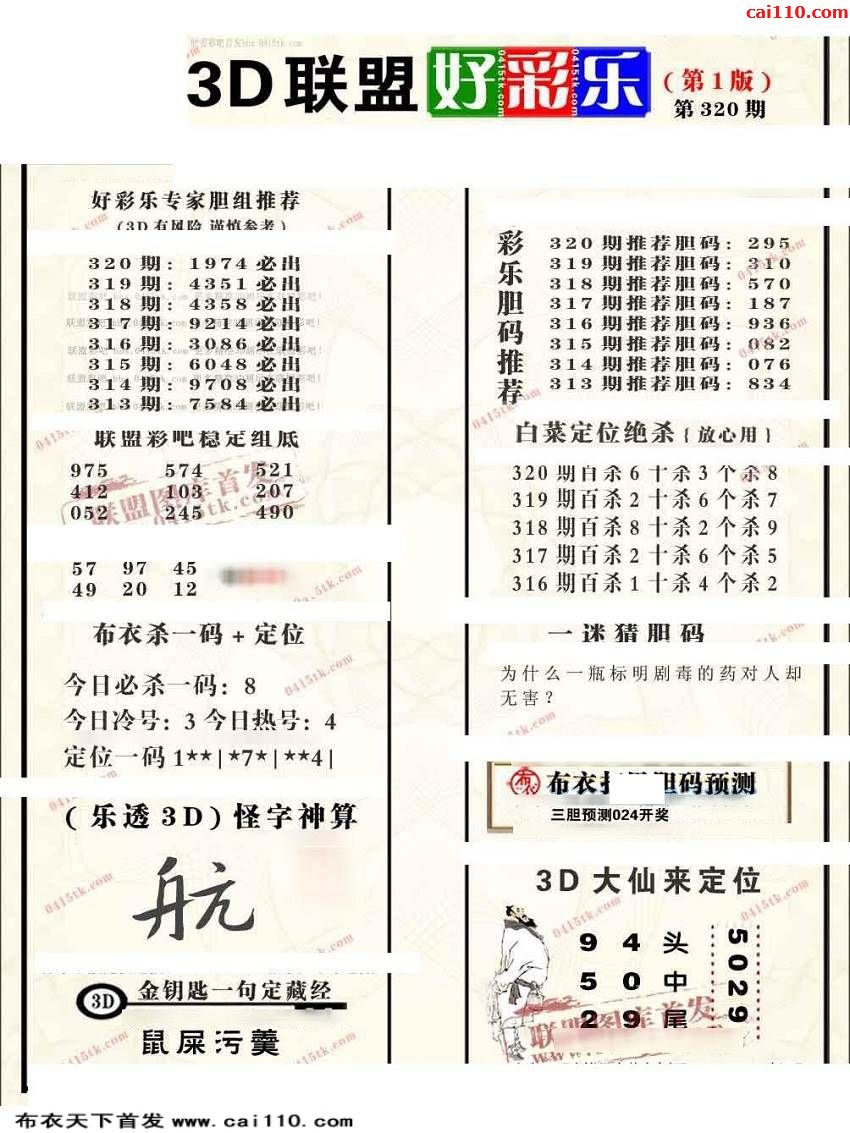 cai110.com
3D联盟好彩乐(第1版)
第320期
好彩乐专家胆组推荐
(3D有风险 谨慎参考)
320期：1974必出
319期：4351必出
318期：4358必出
317期：9214必出
316期：3086必出
315期：6048必出
314期：9708必出
313期：7584必出
联盟彩吧稳定组底
975 574 521
412 103 207
052 245 490
57 97 45
49 20 12
布衣杀一码+定位
今日必杀一码：8
今日冷号：3 今日热号：4
定位一码1**|*7*|**4|
(乐透3D)怪字神算
航
3D 金钥匙一句定藏经
鼠屎污羹
彩乐胆码推荐
320期推荐胆码：295
319期推荐胆码：310
318期推荐胆码：570
317期推荐胆码：187
316期推荐胆码：936
315期推荐胆码：082
314期推荐胆码：076
313期推荐胆码：834
白菜定位绝杀{放心用}
320期百杀6十杀3个杀8
319期百杀2十杀6个杀7
318期百杀8十杀2个杀9
317期百杀2十杀6个杀5
316期百杀1十杀4个杀2
一迷猜胆码
为什么一瓶标明剧毒的药对人却
无害？
布衣 胆码预测
三胆预测024开奖
3D大仙来定位
9 4 头
5 0 中
2 9 尾
5029
联盟图库首发
0415tk.com
布衣天下首发 www.cai110.com